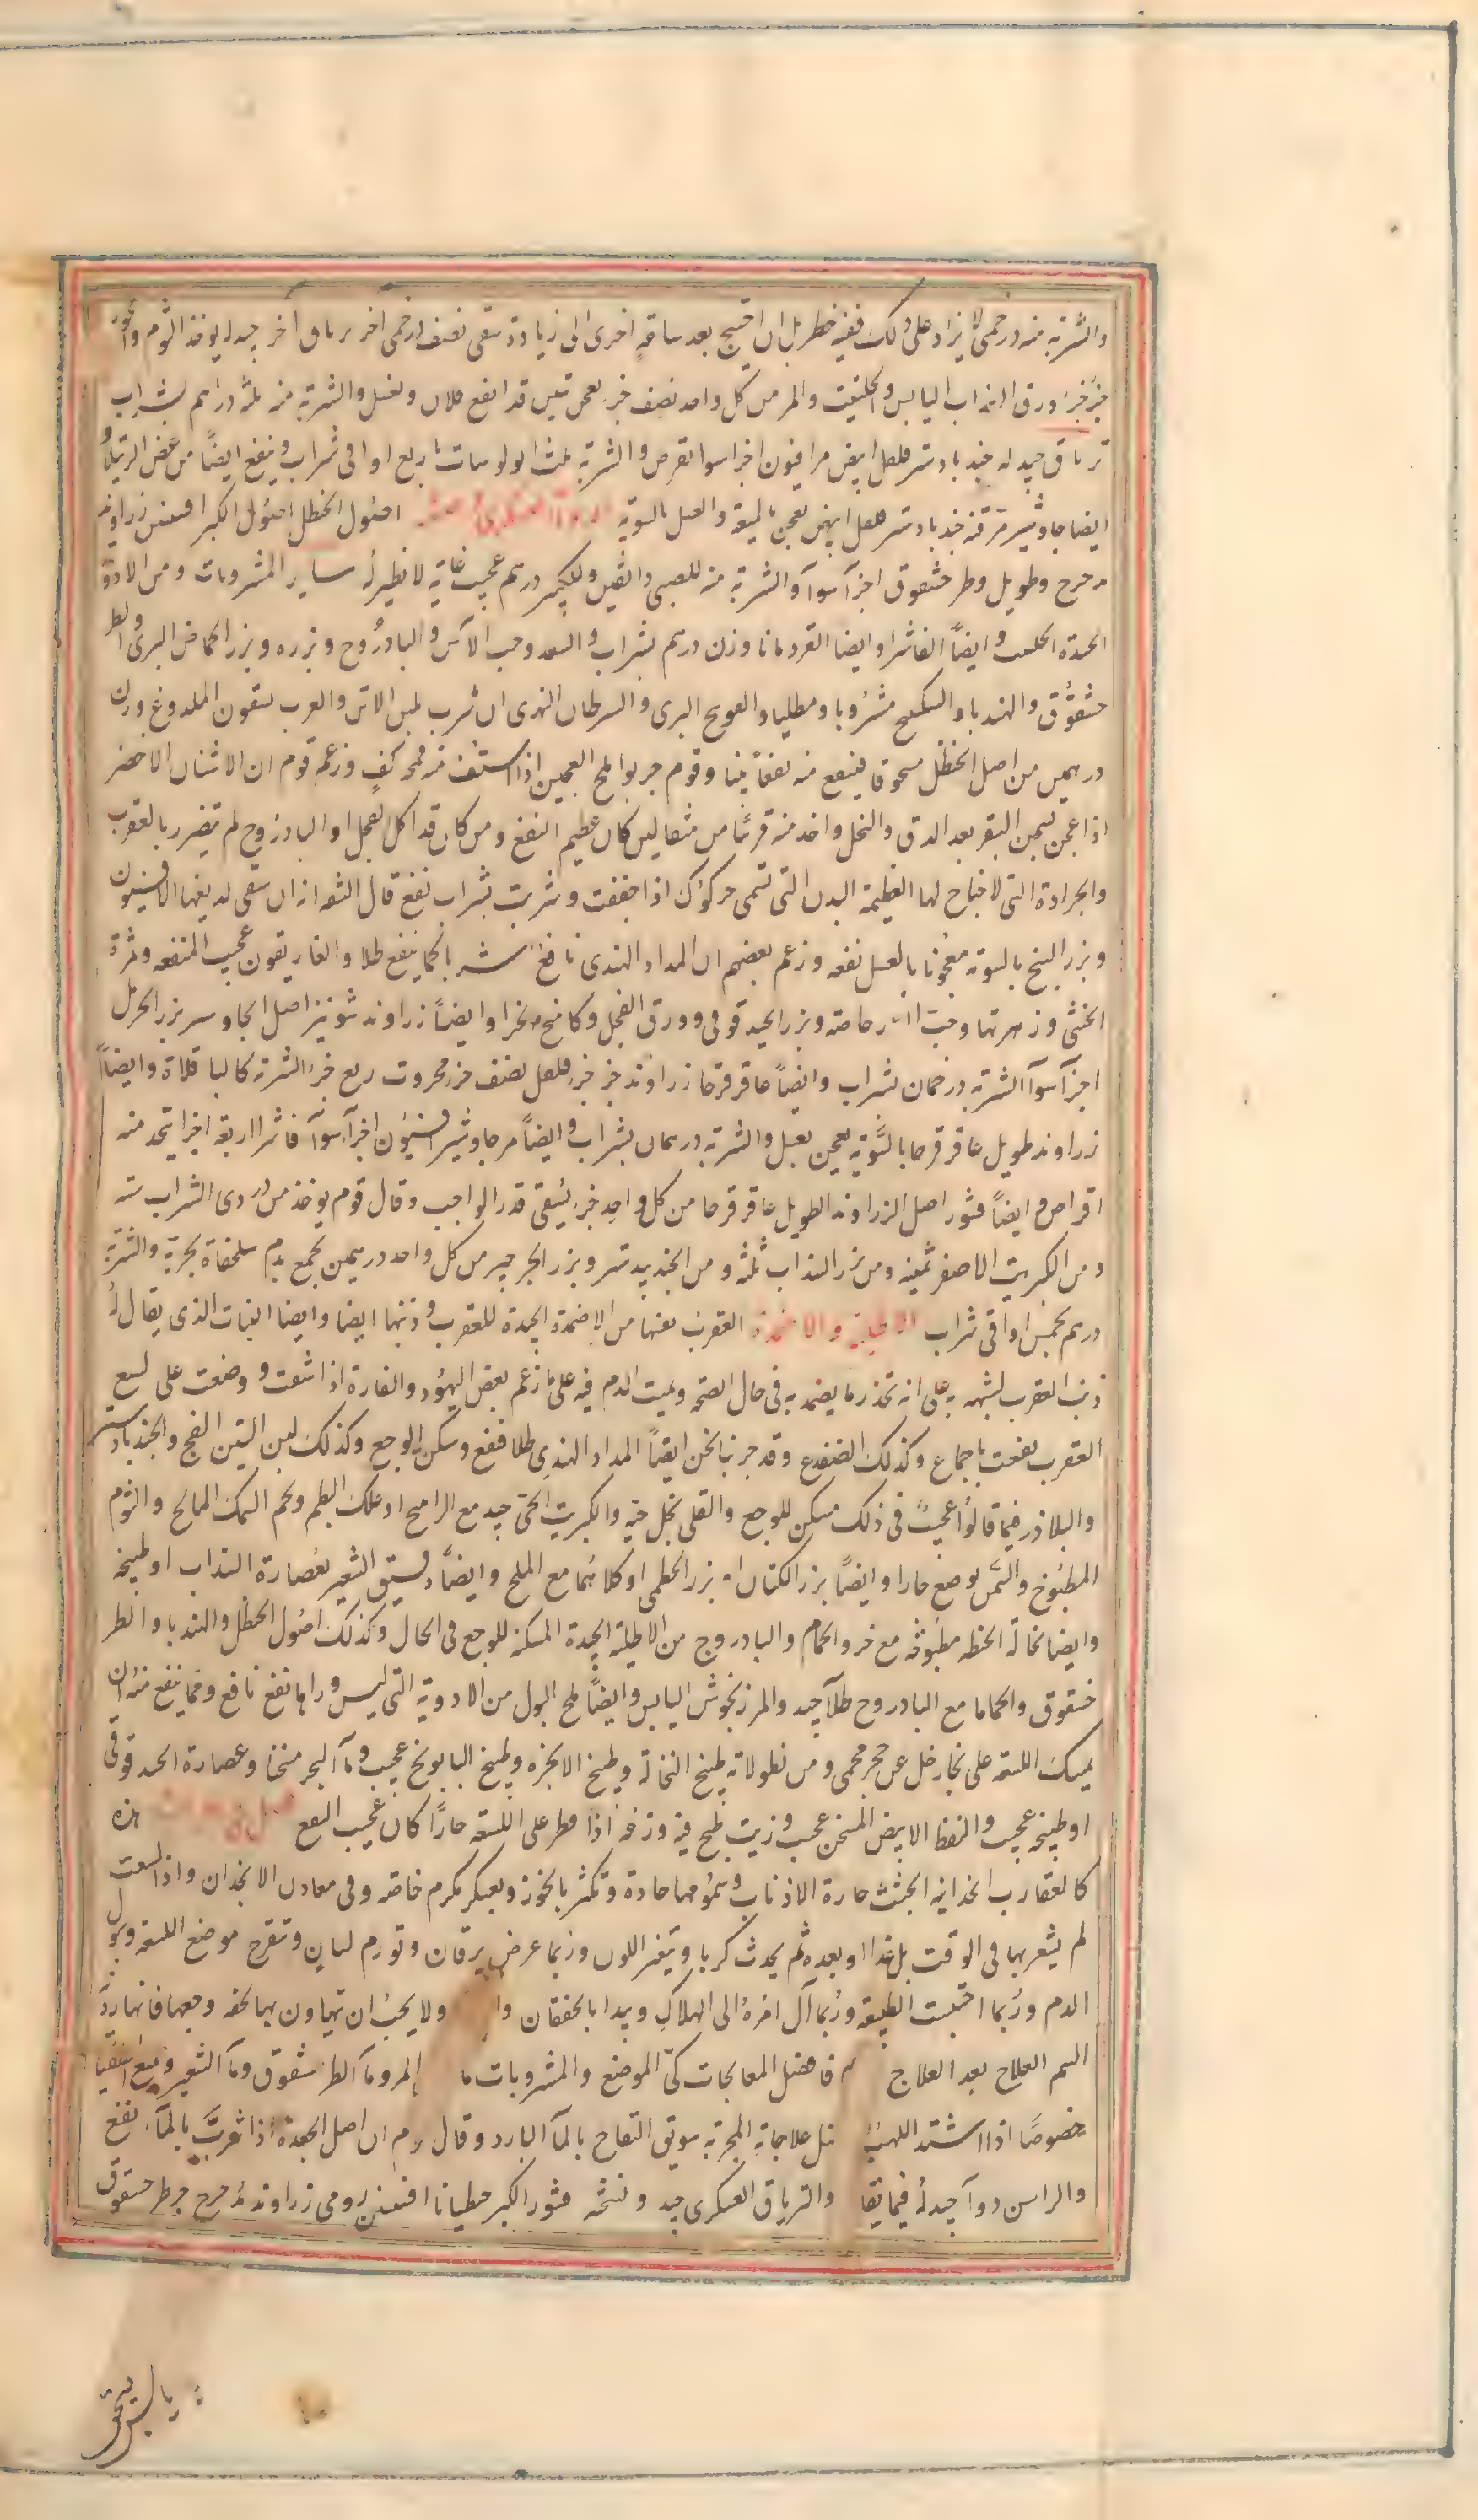 والشربة منه درخمى لا يزاد على ذلك ففيه خطر بل ان احتيج بعد ساعة اخرى الى زيادة سقى نصف درخمى آخر ترياق آخر جيد له يوخذ الثوم والجوز
جزء جزء ورق السذاب اليابس والحلتيت والمر من كل واحد نصف جزء يعجن بتين قد انقع فلان وبعسل والشربة منه ثلثة دراهم بشراب
ترياق جيد له جند بادستر فلفل ابيض مر افيون اجزا سوا يقرص والشربة ثلث ابولوسات باربع اواق شراب وينفع ايضاً من عض الرتيلا و
ايضا جاوشير مر قنه جند بادستر فلفل ابيض يعجن بالميعة والعسل بالسوية اصول الحنظل اصول الكبر افسنتين زراوند
مدحرج وطويل وطرخشقوق اجزآ سوآ والشربة منه للصبي دانقين وللكبير درهم عجيب غاية لا نظير له ساير المشروبات ومن الادوية
الجيدة الحلتيت وايضاً الفاشرا وايضا القردمانا وزن درهم بشراب والسعد وحب الآس والبادروج وبزره وبزر الحماض البرى والطر
خشقوق والهندبا والسكبينج مشروبا ومطليا والفوتنج البرى والسرطان النهرى ان شرب بلبن الاتن والعرب يسقون الملدوغ وزن
درهمين من اصل الحنظل مسحوقا فينفع منه نفعاً بينا وقوم جربوا ملح العجين اذا استف منه قمحة كف وزعم قوم ان الاشنان الاخضر
اذا عجن بسمن البقر بعد الدق والنخل واخذ منه قرصا من مثقالين كان عظيم النفع ومن كان قد اكل الفجل او البادروج لم يتضرر بالعقرب
والجرادة التى لا جناح لها العظيمة البدن التى تسمى خركوك اذا جففت وشربت بشراب نفع قال الثقة انه ان سقى لديغها الافيون
وبزر البنج بالسوية معجونا بالعسل نفعه وزعم بعضهم ان المداد الهندى نافع شربا كما ينفع طلا والغاريقون عجيب المنفعة وثمرة
الخنثى وزهرتها وحب الغار خاصة وبزر الحندقوقى وورق الفجل وكامخ وايضاً زراوند شونيز اصل الجاوشير بزر الحرمل
اجزآ سوآ الشربة درخمان بشراب وايضاً عاقرقرحا زراوند جزء جزء فلفل نصف جزء محروت ربع جزء الشربة كالباقلاة وايضاً
زراوند طويل عاقرقرحا بالسوية يعجن بعسل والشربة درهمان بشراب وايضاً مر جاوشير افيون اجزآ سوآ فاشرا اربعة اجزا يتخذ منه
اقراص وايضاً قشور اصل الزراوند الطويل عاقرقرحا من كل واحد جزء يسقى قدر الواجب وقال قوم يوخذ من دردى الشراب ستة
ومن الكبريت الاصفر ثمنية ومن بزر السذاب ثلثة ومن الجندبيدستر وبزر الجرجير من كل واحد درهمين يجمع بدم سلحفاة بحرية والشربة
درهم بخمس اواقى شراب الاطلية والاضمدة العقرب نفسها من الاضمدة الجيدة للعقرب وذنبها ايضا وايضا النبات الذى يقال له
ذنب العقرب لشبهه به على انه يخدر ما يضمد به فى حال الصحة ويميت الدم فيه على ما زعم بعض اليهود والفارة اذا شقت ووضعت على لسع
العقرب نفعت باجماع وكذلك الضفدع وقد جربنا نحن ايضاً المداد الهندى طلا فنفع وسكن الوجع وكذلك لبن التين الفج والجندبادستر
والبلاذر فيما قالوا عجيب فى ذلك مسكن للوجع والقلى بخل حية والكبريت الحى جيد مع الراتينج او علك البطم ولحم السمك المالح والثوم
المطبوخ والسمن يوضع حارا وايضاً بزر الكتان او بزر الخطمى او كلاهما مع الملح وايضاً دقيق الشعير بعصارة السذاب او طبيخه
وايضا نخالة الحنطه مطبوخة مع خرو الحمام والبادروج من الاطلية الجيدة المسكنة للوجع فى الحال وكذلك اصول الحنظل والهندبا والطر
خشقوق والحماما مع البادروج طلآ جيد والمرزنجوش اليابس وايضاً ملح البول من الادوية التى ليس وراها نفع نافع ومما ينفع منه ان
يمسك اللسعة على بخار خل عن حجر محمى ومن نطولاته طبيخ النخالة وطبيخ الانجرة وطبيخ البابونج عجيب وماء البحر مسخنا وعصارة الحندقوقى
او طبيخه عجيب والنفط الابيض المسخن عجيب وزيت طبخ فيه وزغه اذا قطر على اللسعة حاراً كان عجيب النفع هذه
كالعقارب الخذانية الجثث جارة الاذناب وسمومها حادة وتكثر بالخوز وبعسكر مكرم خاصه وفى معادن الانجدان واذا لسعت
لم يشعر بها فى الوقت بل غدا او بعده ثم يحدث كربا ويتغير اللون وربما عرض يرقان وتورم لسان وتقرح موضع اللسعة وبول
الدم وربما احتبست الطبيعة وربما آل امره الى الهلاك ويبدا بالخفقان وا ولا يجب ان يتهاون بها لخفة وجعها فانها ردية
السم العلاج بعد العلاج فافضل المعالجات كىّ الموضع والمشروبات ما المر ومآ الطرخشقوق ومآ الشعير
خصوصاً اذا اشتد اللهيب علاجاته المجربة سويق التفاح بالمآ البارد وقال قوم ان اصل الجعدة اذا شربت بالمآ نفع
والراسن دوآ جيد له فيما يقا والترياق العسكرى جيد ونسخته قشور الكبر جنطيانا افسنتين رومى زراوند مدحرج طرخشقوق
يابس يسحق